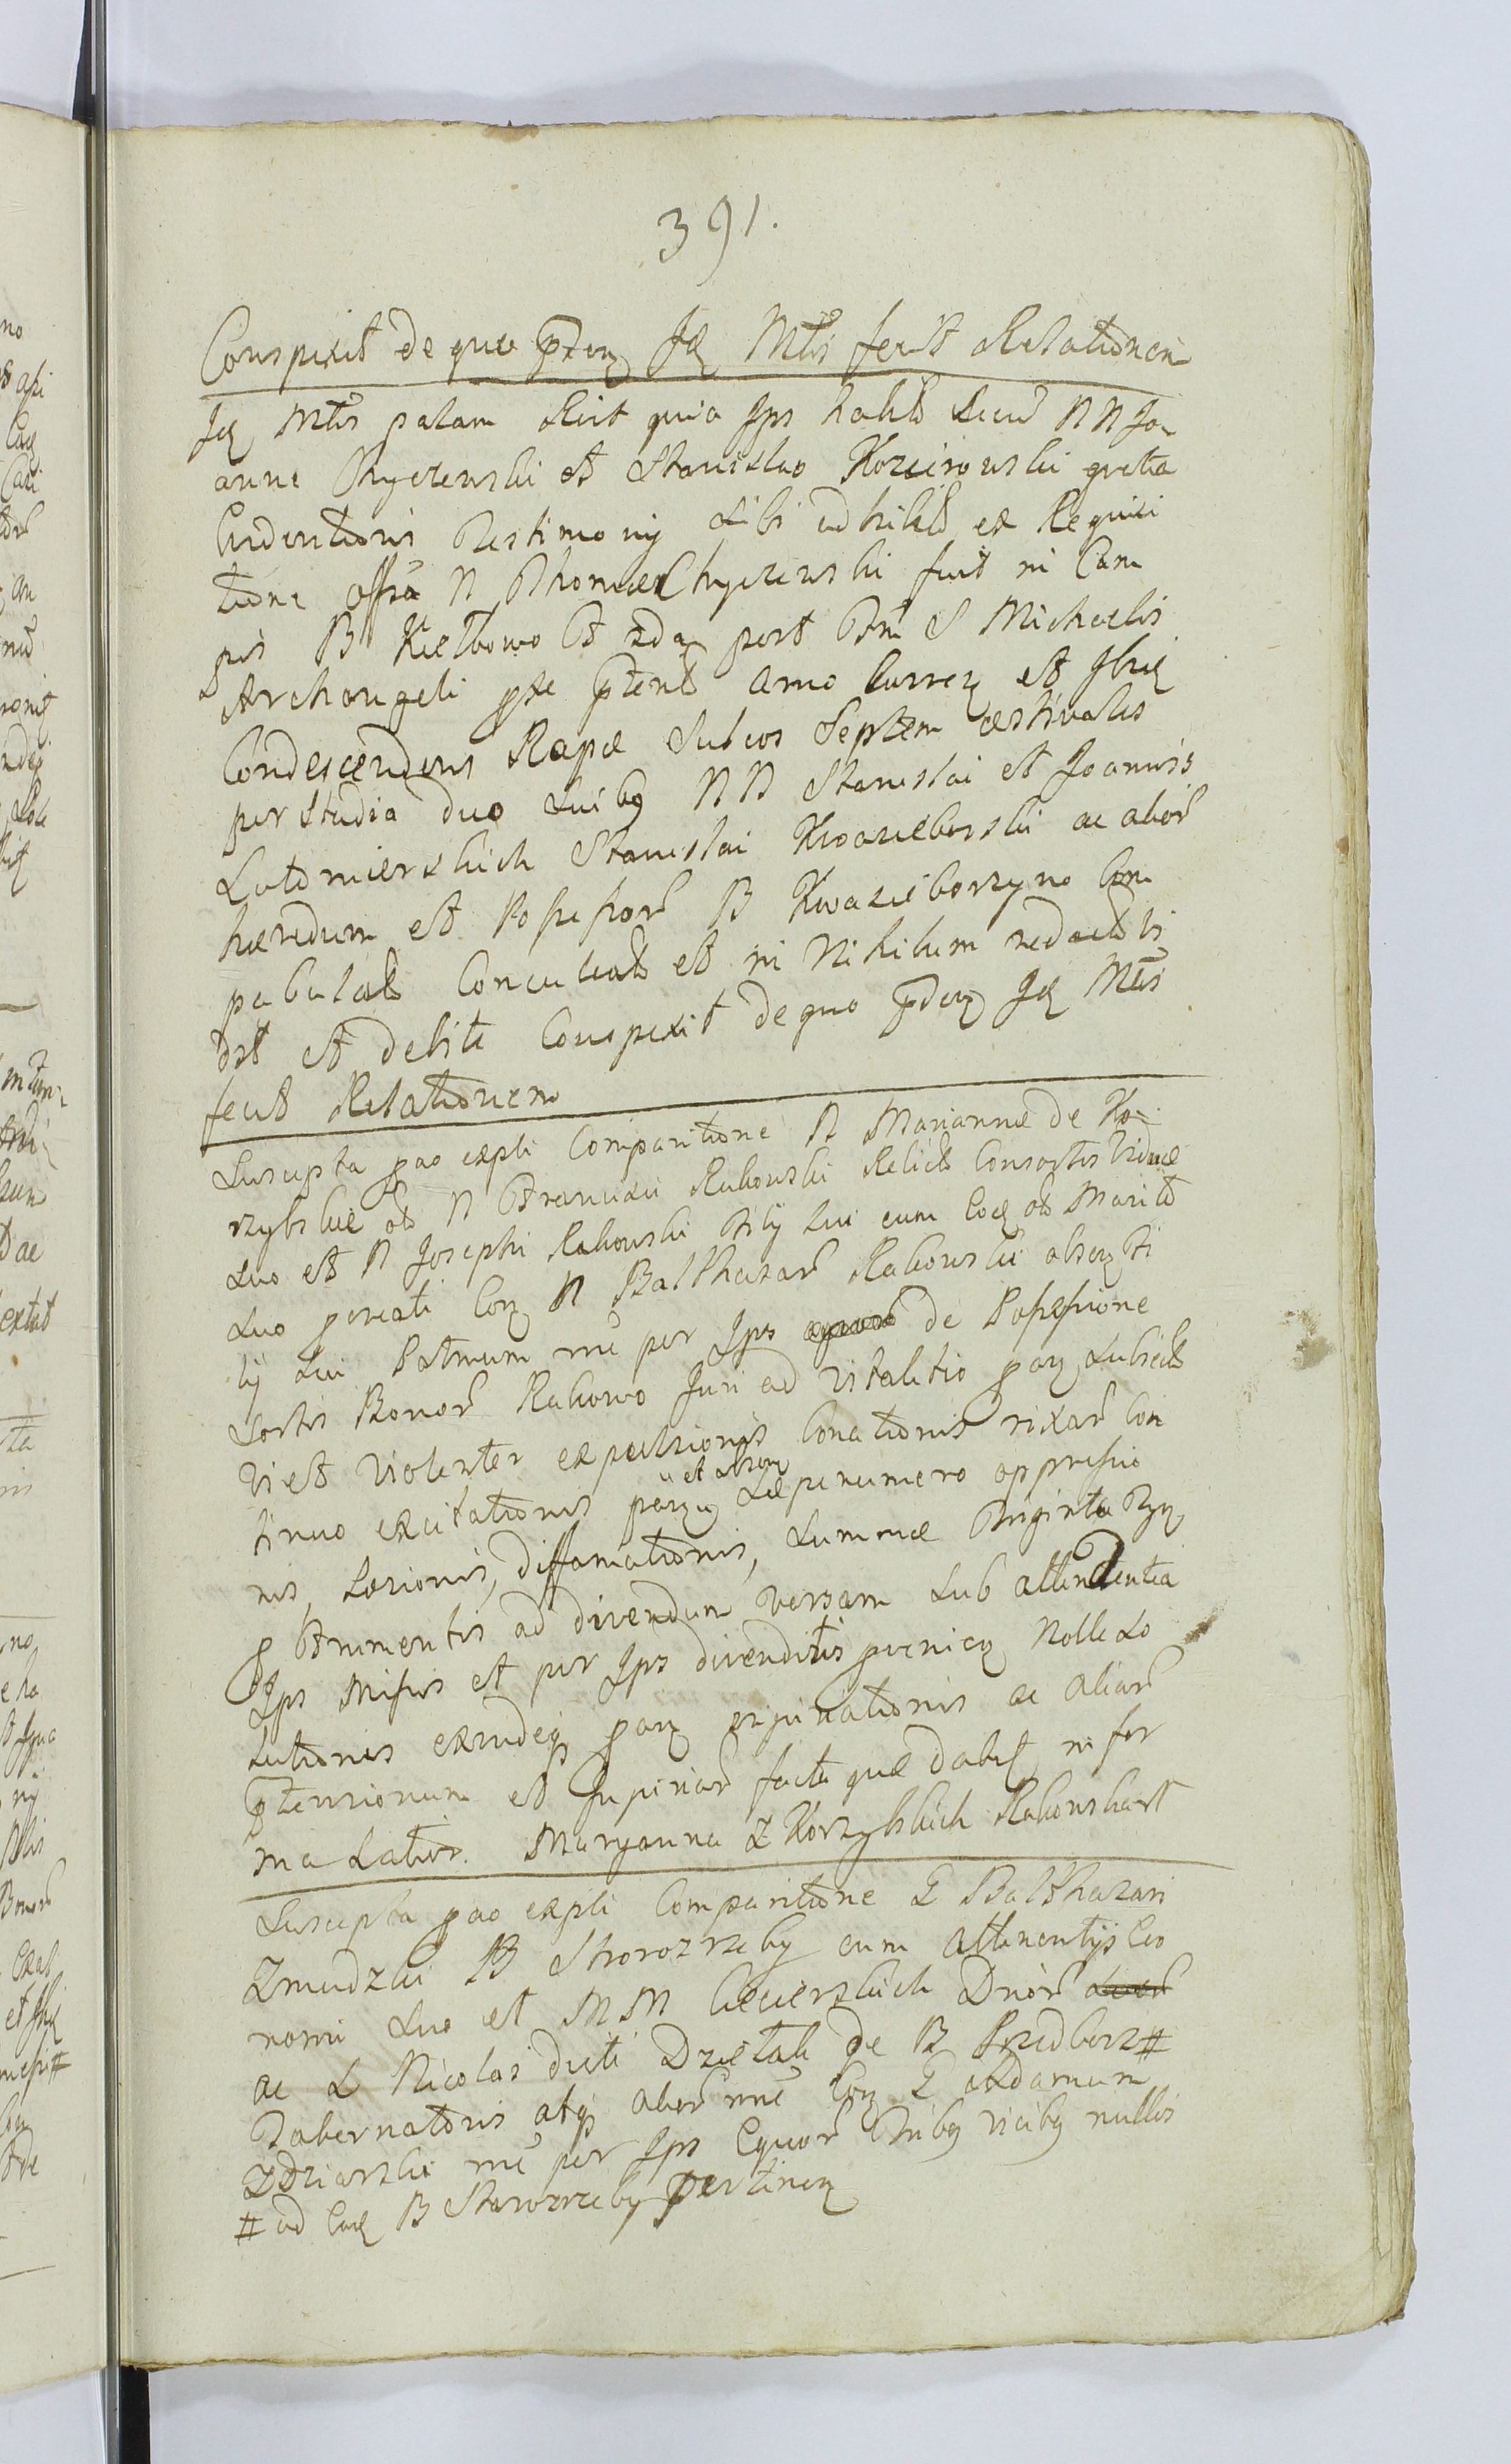 391.
Conspexit de quo pdem Jd Mtis fecit Relationem
Jd Mtis palam dixit quia Ips habito secum NN Jo
anne Chyczewski et Stanislao Kozierowski gratia
Evidentioris Testimony sibi adhibito ex Requisi
tione offsa N Thomae Chyczewski fuit in Cam
pis B Kiełbowo et 2da post ftm S Michaelis
Archangeli pte ptento Anno Curren et Ibid
Condescendens Rapae Sulcos Septem aestivales
per Studia duo suibq NN Stanislai et Joannis
Lutomierskich Stanislai Kwasieborski ac alior
haeredum et Possessor B Kwasieborzyno Com
pabulato Conculcato et in Nihilum redactos vi
dit et debite Conspexit de quo pdem Jd Mtis
fecit Relationem
Suscepta pao expti Comparitione N Mariannae de Ko
rzybskie ol N Francisci Rakowski Relictae Consortis viduae
suo et N Josephi Rakowski Fily sui cum Eod ol Marito
suo pcreati Con N Balthasar Rakowski absen ti
ly sui Patruum rne per Ips de Possessione
Sortis Bonor Rakowo Juri ad vitalitio pan subjecto
vi et violenter expulsionis Conationis rixar Con
tinuo excitationis et absen saepenumero oppressio
nis, Laesionis, diffamationis, Summae Triginta
p frumentis ad divendum Versam sub attendentia
Ips Missis et per Ips divenditis Nolle so
lutionis exindeq pan ac aliar
ptensionum et Injuriar facta quae dabit in for
ma Latior. Maryanna z Korzybskich Rakowska
Suscepta pao expti Comparitione G Balthazari
Zmudzki B Starozrzeby cum attinentys Eco
nomi suo et MM Ciecierskich Dnor
ac L Nicolai dicti Dzietak de B Przedborz #
Tabernatoris atq alior rne Con G Adamum
Zdziarski rne per Ips Equor Tribq vicibq nullis
# ad Ead B Starozrzeby pertinen